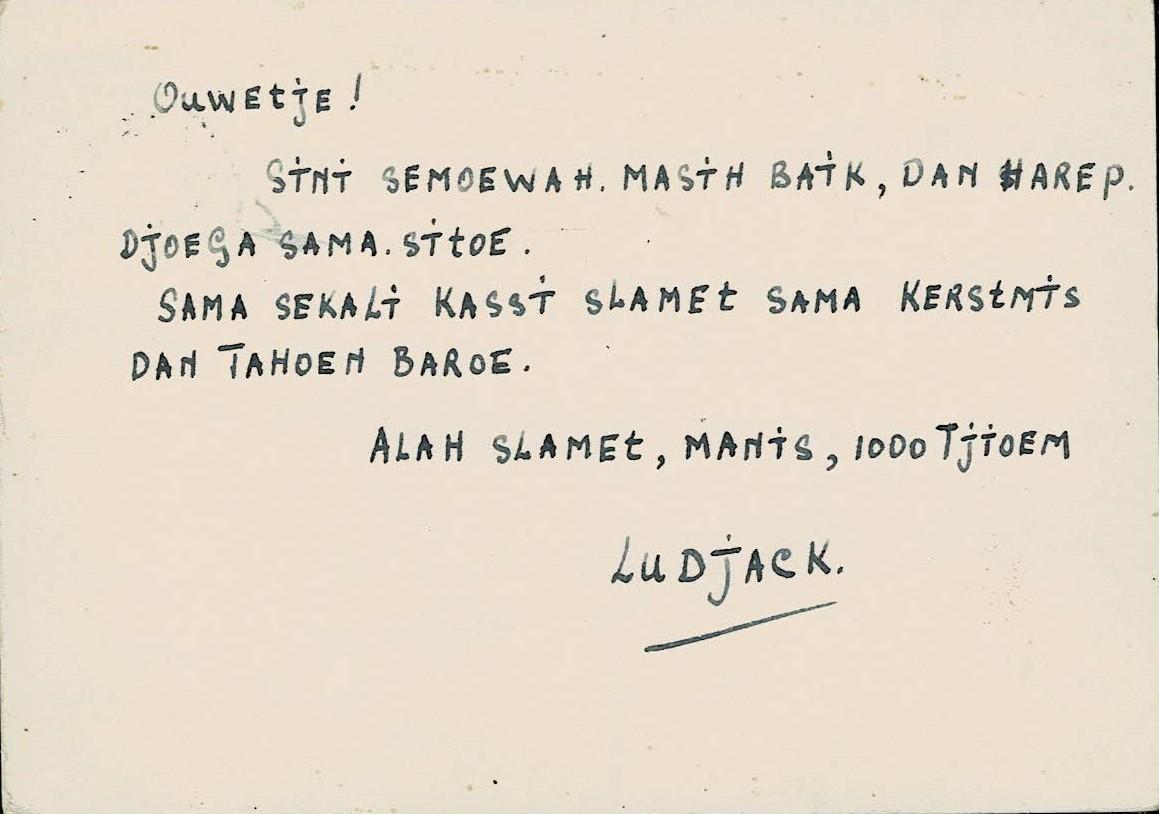 Ouwetje!
Sini semoewah. masih baik, dan harep.
djoega sama. sitoe.
Sama sekali kassi slamet sama kerstmis
dan Tahoen baroe.
Alah slamet, manis, 1000 Tjioem
Ludjack.